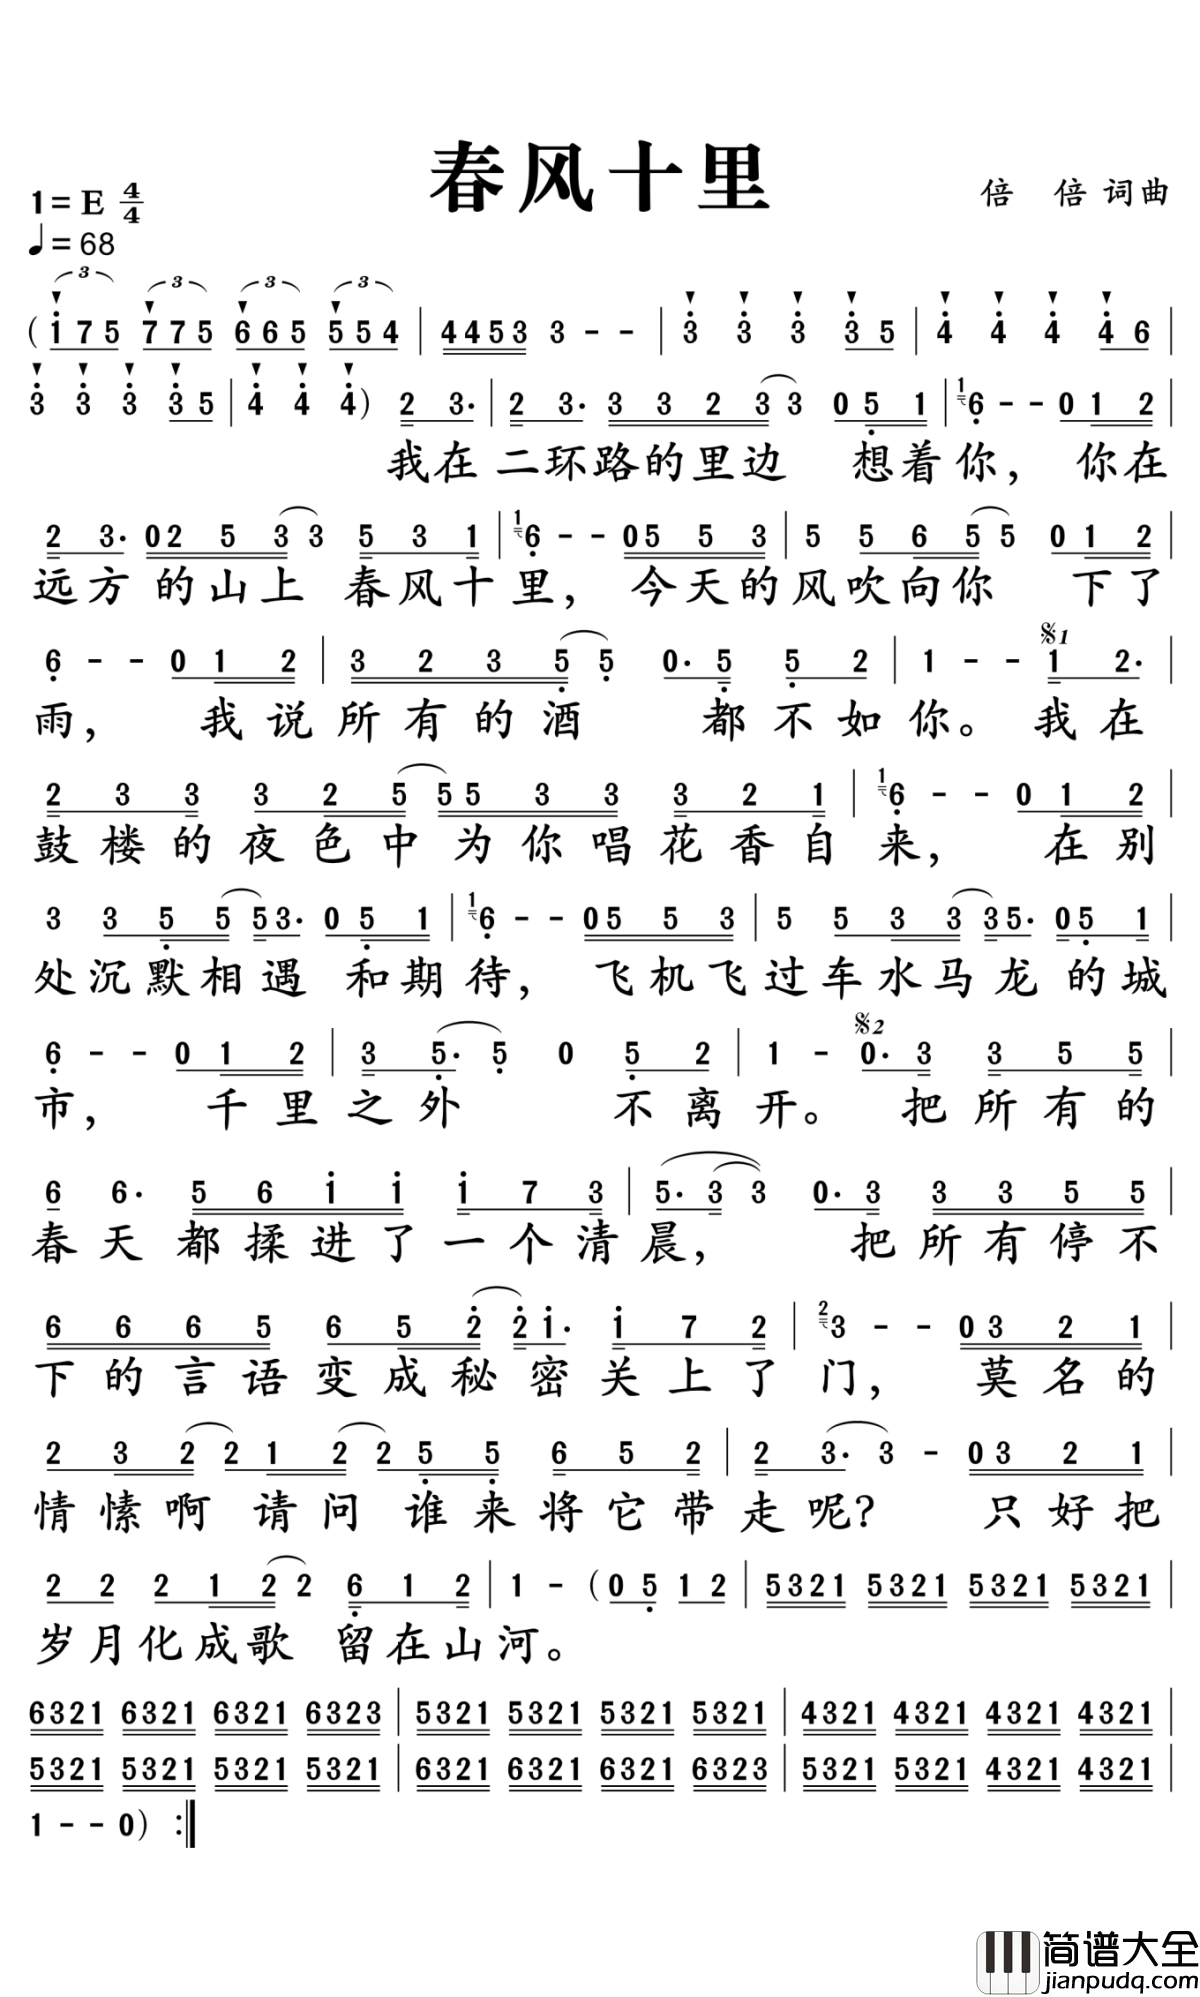 春风十里
倍 倍 词曲
1=E 4/4
♩=68
3 3 3 3
(1 7 5 7 7 5 6 6 5 5 5 4 | 4 4 5 3 3 - - | 3 3 3 3 5 | 4 4 4 4 6 |
3 3 3 3 5 | 4 4 4) 2 3· | 2 3· 3 3 2 3 3 0 5 1 | 1 6 - - 0 1 2 |
我在二环路的里边 想着你， 你在
2 3· 0 2 5 3 3 5 3 1 | 1 6 - - 0 5 5 3 | 5 5 6 5 5 0 1 2 |
远方的山上 春风十里， 今天的风吹向你 下了
6 - - 0 1 2 | 3 2 3 5 5 0· 5 5 2 | 1 - - 𝄋1 1 2· |
雨， 我说所有的酒 都不如你。我在
2 3 3 3 2 5 5 5 3 3 3 2 1 | 1 6 - - 0 1 2 |
鼓楼的夜色中为你唱花香自来， 在别
3 3 5 5 5 3· 0 5 1 | 1 6 - - 0 5 5 3 | 5 5 3 3 3 5· 0 5 1 |
处沉默相遇 和期待， 飞机飞过车水马龙的城
6 - - 0 1 2 | 3 5· 5 0 5 2 | 1 - 𝄋2 0· 3 3 5 5 |
市， 千里之外 不离开。 把所有的
6 6· 5 6 1 1 1 7 3 | 5· 3 3 0· 3 3 3 5 5 |
春天都揉进了一个清晨， 把所有停不
6 6 6 5 6 5 2 2 1· 1 7 2 | 2 3 - - 0 3 2 1 |
下的言语变成秘密关上了门， 莫名的
2 3 2 2 1 2 2 5 5 6 5 2 | 2 3· 3 - 0 3 2 1 |
情愫啊 请问 谁来将它带走呢? 只好把
2 2 2 1 2 2 6 1 2 | 1 - (0 5 1 2 | 5321 5321 5321 5321 |
岁月化成歌 留在山河。
6321 6321 6321 6323 | 5321 5321 5321 5321 | 4321 4321 4321 4321 |
5321 5321 5321 5321 | 6321 6321 6321 6323 | 5321 5321 4321 4321 |
1 - - 0) :‖
简谱大全
jianpudq.com